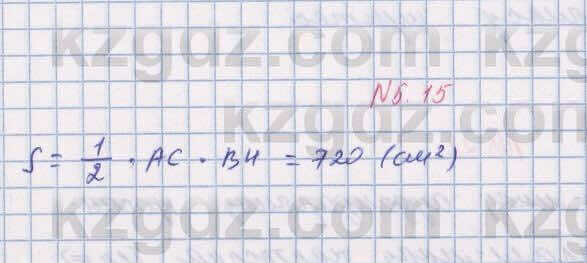 kzgdz.com
N5.15
kzgdz.com
S = 1/2 · AC · BH = 720 (см²)
kzgdz.com